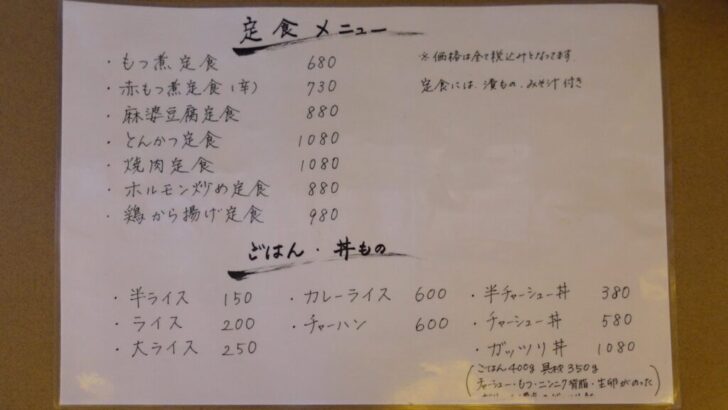 定食メニュー
・もつ煮定食 680
・赤もつ煮定食(辛) 730
・麻婆豆腐定食 880
・とんかつ定食 1080
・焼肉定食 1080
・ホルモン炒め定食 880
・鶏から揚げ定食 980
※価格は全て税込みとなってます
定食には、漬もの、みそ汁付き
ごはん・丼もの
・半ライス 150
・ライス 200
・大ライス 250
・カレーライス 600
・チャーハン 600
・半チャーシュー丼 380
・チャーシュー丼 580
・ガッツリ丼 1080
(ごはん400g 具材350g
チャーシュー・もつ・ニンニク背脂・生卵がのった